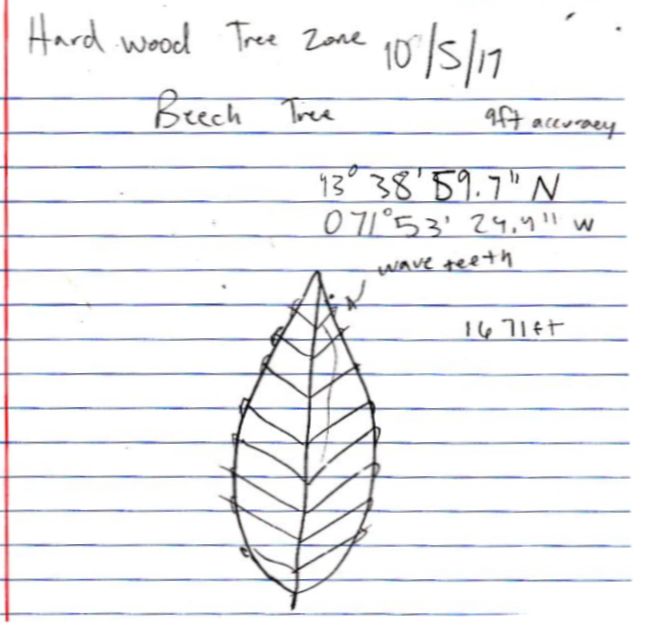 Hard wood Tree Zone 10/5/17
Beech Tree 9ft accuracy
43° 38' 59.7" N
071° 53' 24.4" W
wave teeth
1671ft